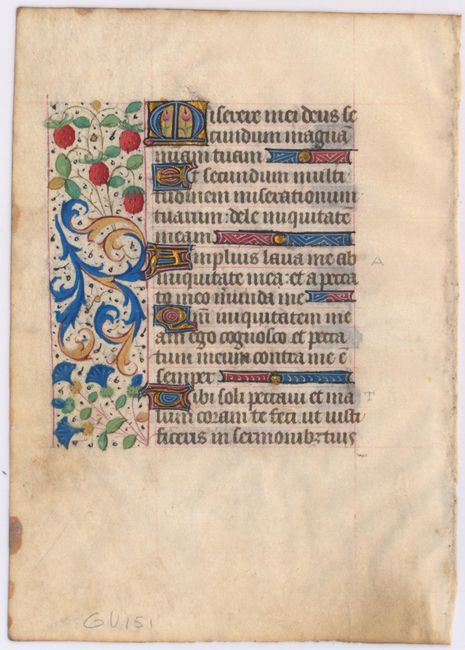 Miserere mei deus se
cundum magnā
mīam tuam
Et secundum multi
tudinem miserationum
tuarum: dele iniquitate
meam
Amplius lava me ab
iniquitate mea: et a pecca
to meo munda me
Qm̄ iniquitatem me
am ego cognosco et pecca
tum meum contra me ē
semper
Tibi soli peccavi et ma
lum coram te feci ut iusti
ficeris in sermonibꝫ tuis
A
T
GU151